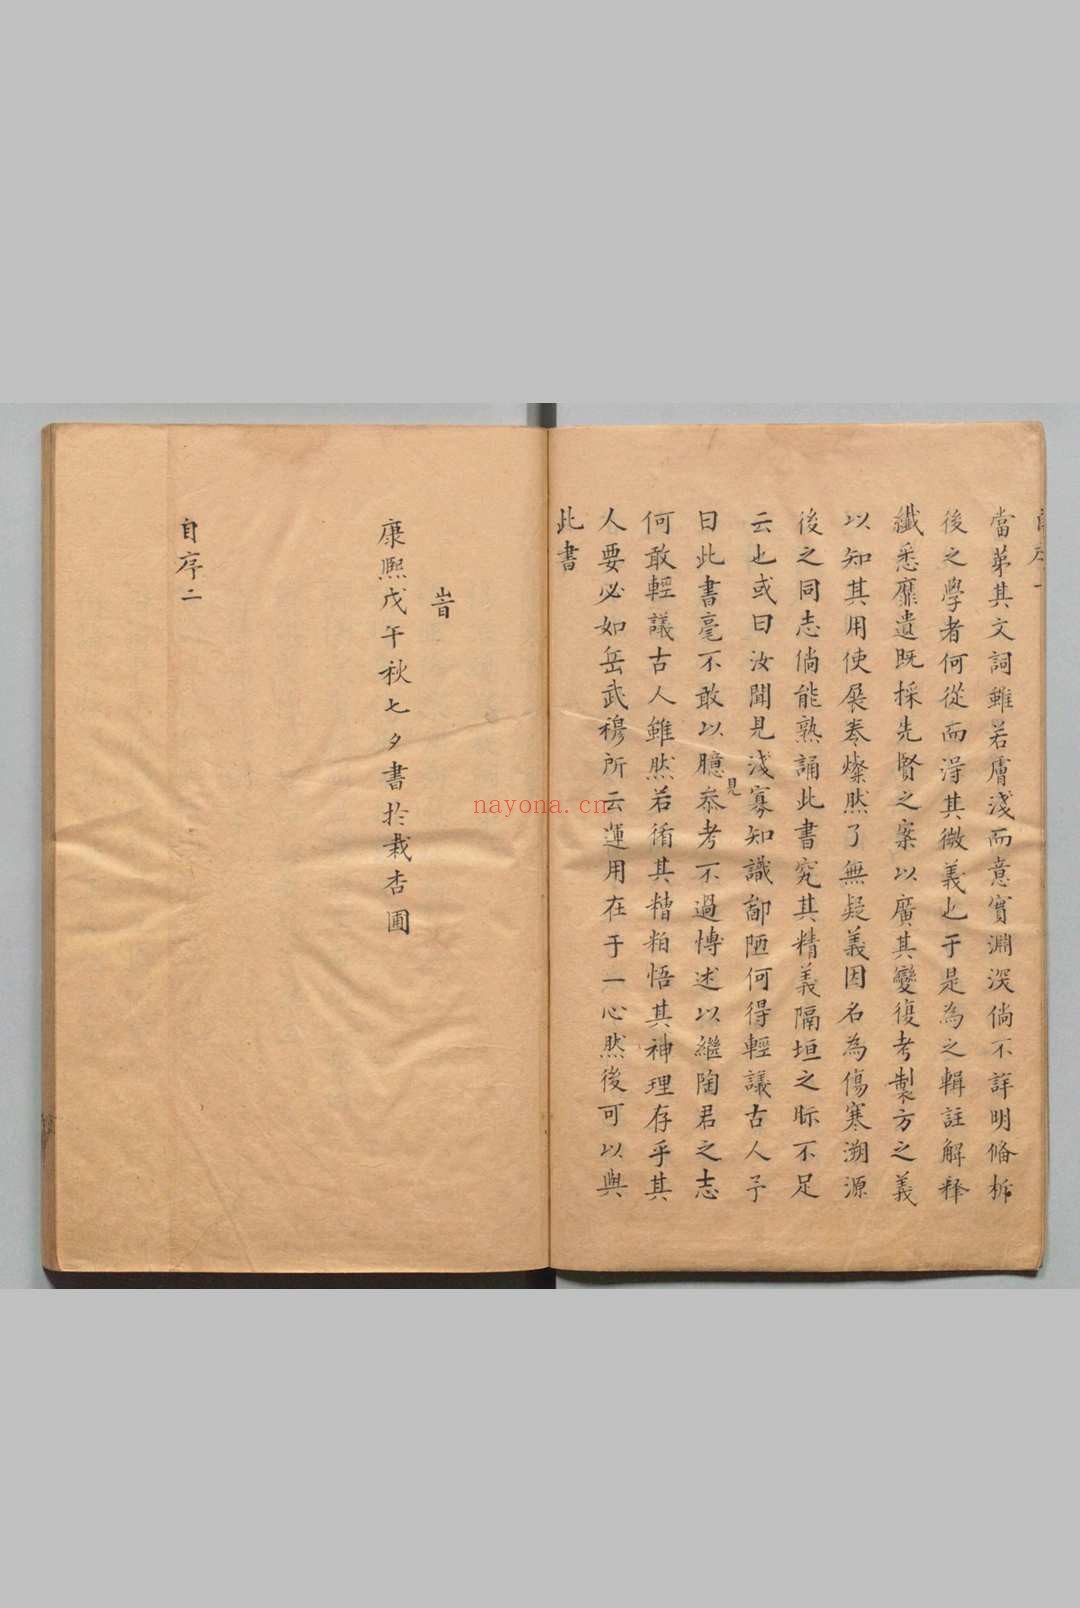 自序一
當第其文詞雖若膚淺而意實淵深倘不詳明條析
後之學者何從而得其微義也于是為之輯註解釋
纖悉靡遺既採先賢之案以廣其變復考製方之義
以知其用使展卷燦然了無疑義因名為傷寒溯源
後之同志倘能熟誦此書究其精義隔垣之眎不足
云也或曰汝聞見淺寡知識鄙陋何得輕議古人予
曰此書毫不敢以臆見叅考不過慱述以繼陶君之志
何敢輕議古人雖然若循其糟粕悟其神理存乎其
人要必如岳武穆所云運用在于一心然後可以與
此書
旹
康熙戊午秋七夕書扵栽杏圃
自序二
nayona.cn